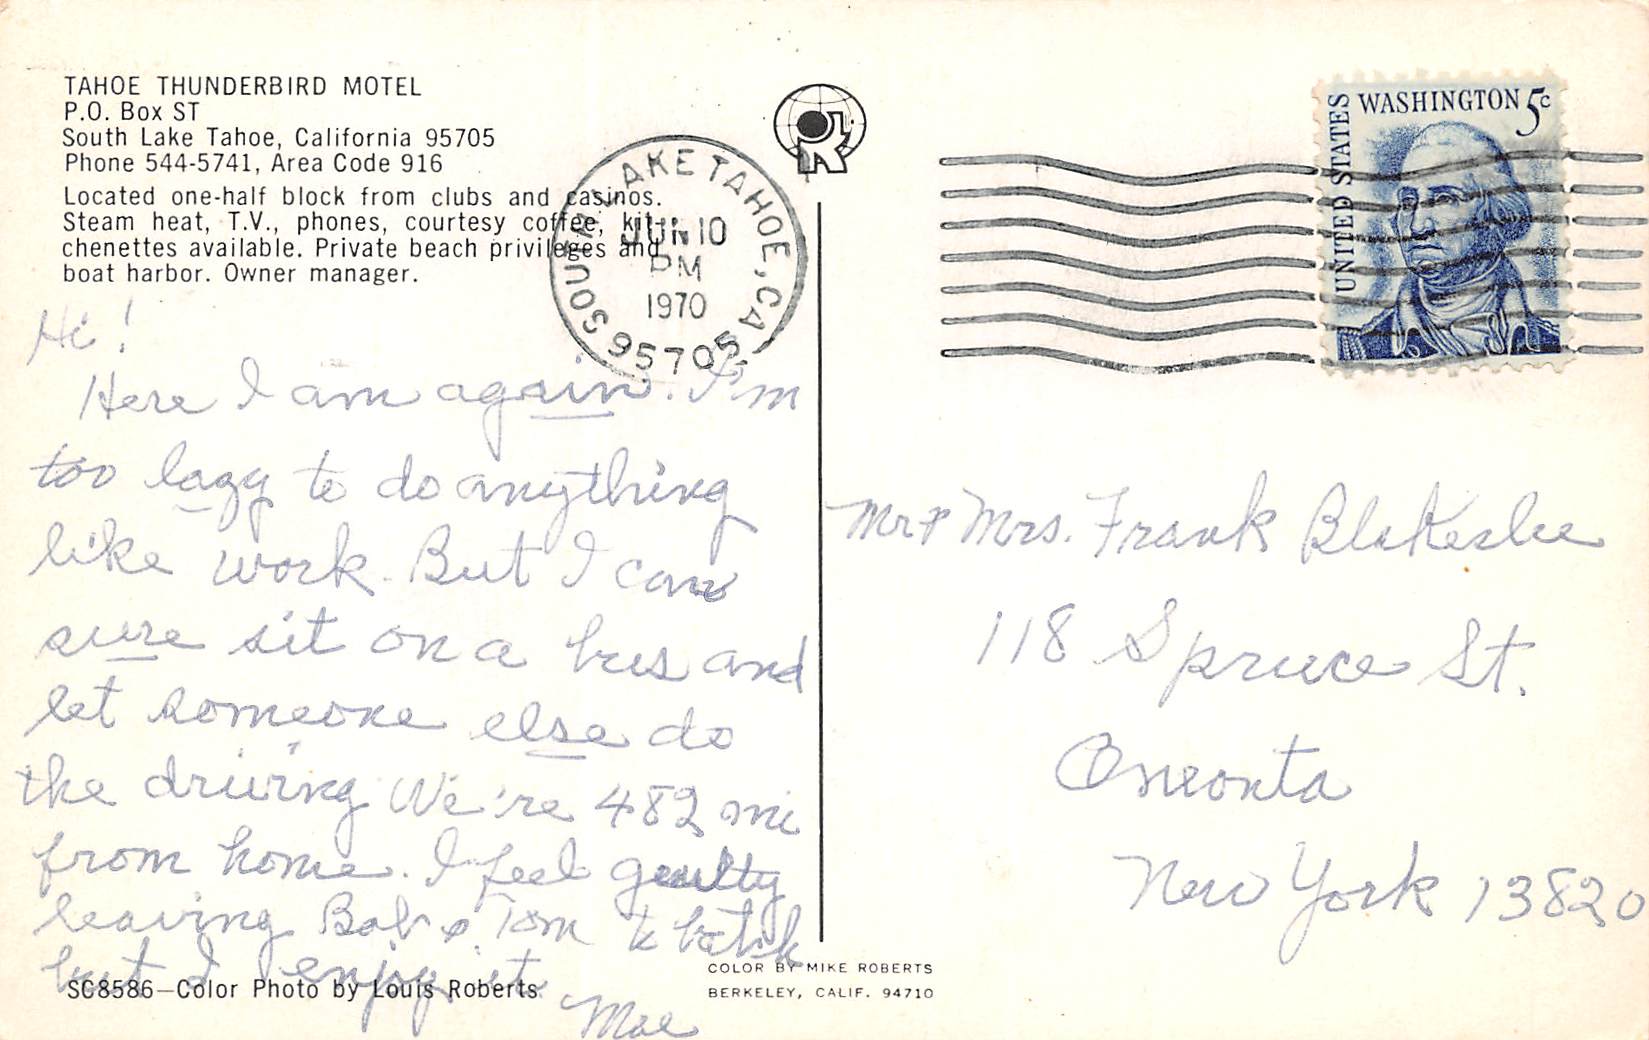 TAHOE THUNDERBIRD MOTEL
P.O. Box ST
South Lake Tahoe, California 95705
Phone 544-5741, Area Code 916
Located one-half block from clubs and casinos.
Steam heat, T.V., phones, courtesy coffee, kit-
chenettes available. Private beach privileges and
boat harbor. Owner manager.
SOUTH LAKE TAHOE, CA
JUN 10
PM
1970
95705
UNITED STATES
WASHINGTON 5c
Hi!
Here I am again. I'm
too lazy to do anything
like work. But I can
sure sit on a bus and
let someone else do
the driving We're 482 mi
from home. I feel guilty
leaving Bob & Tom to batch
but I enjoy it.
Mae
Mr & Mrs. Frank Blakeslee
118 Spruce St.
Oneonta
New York 13820
SC8586—Color Photo by Louis Roberts
COLOR BY MIKE ROBERTS
BERKELEY, CALIF. 94710